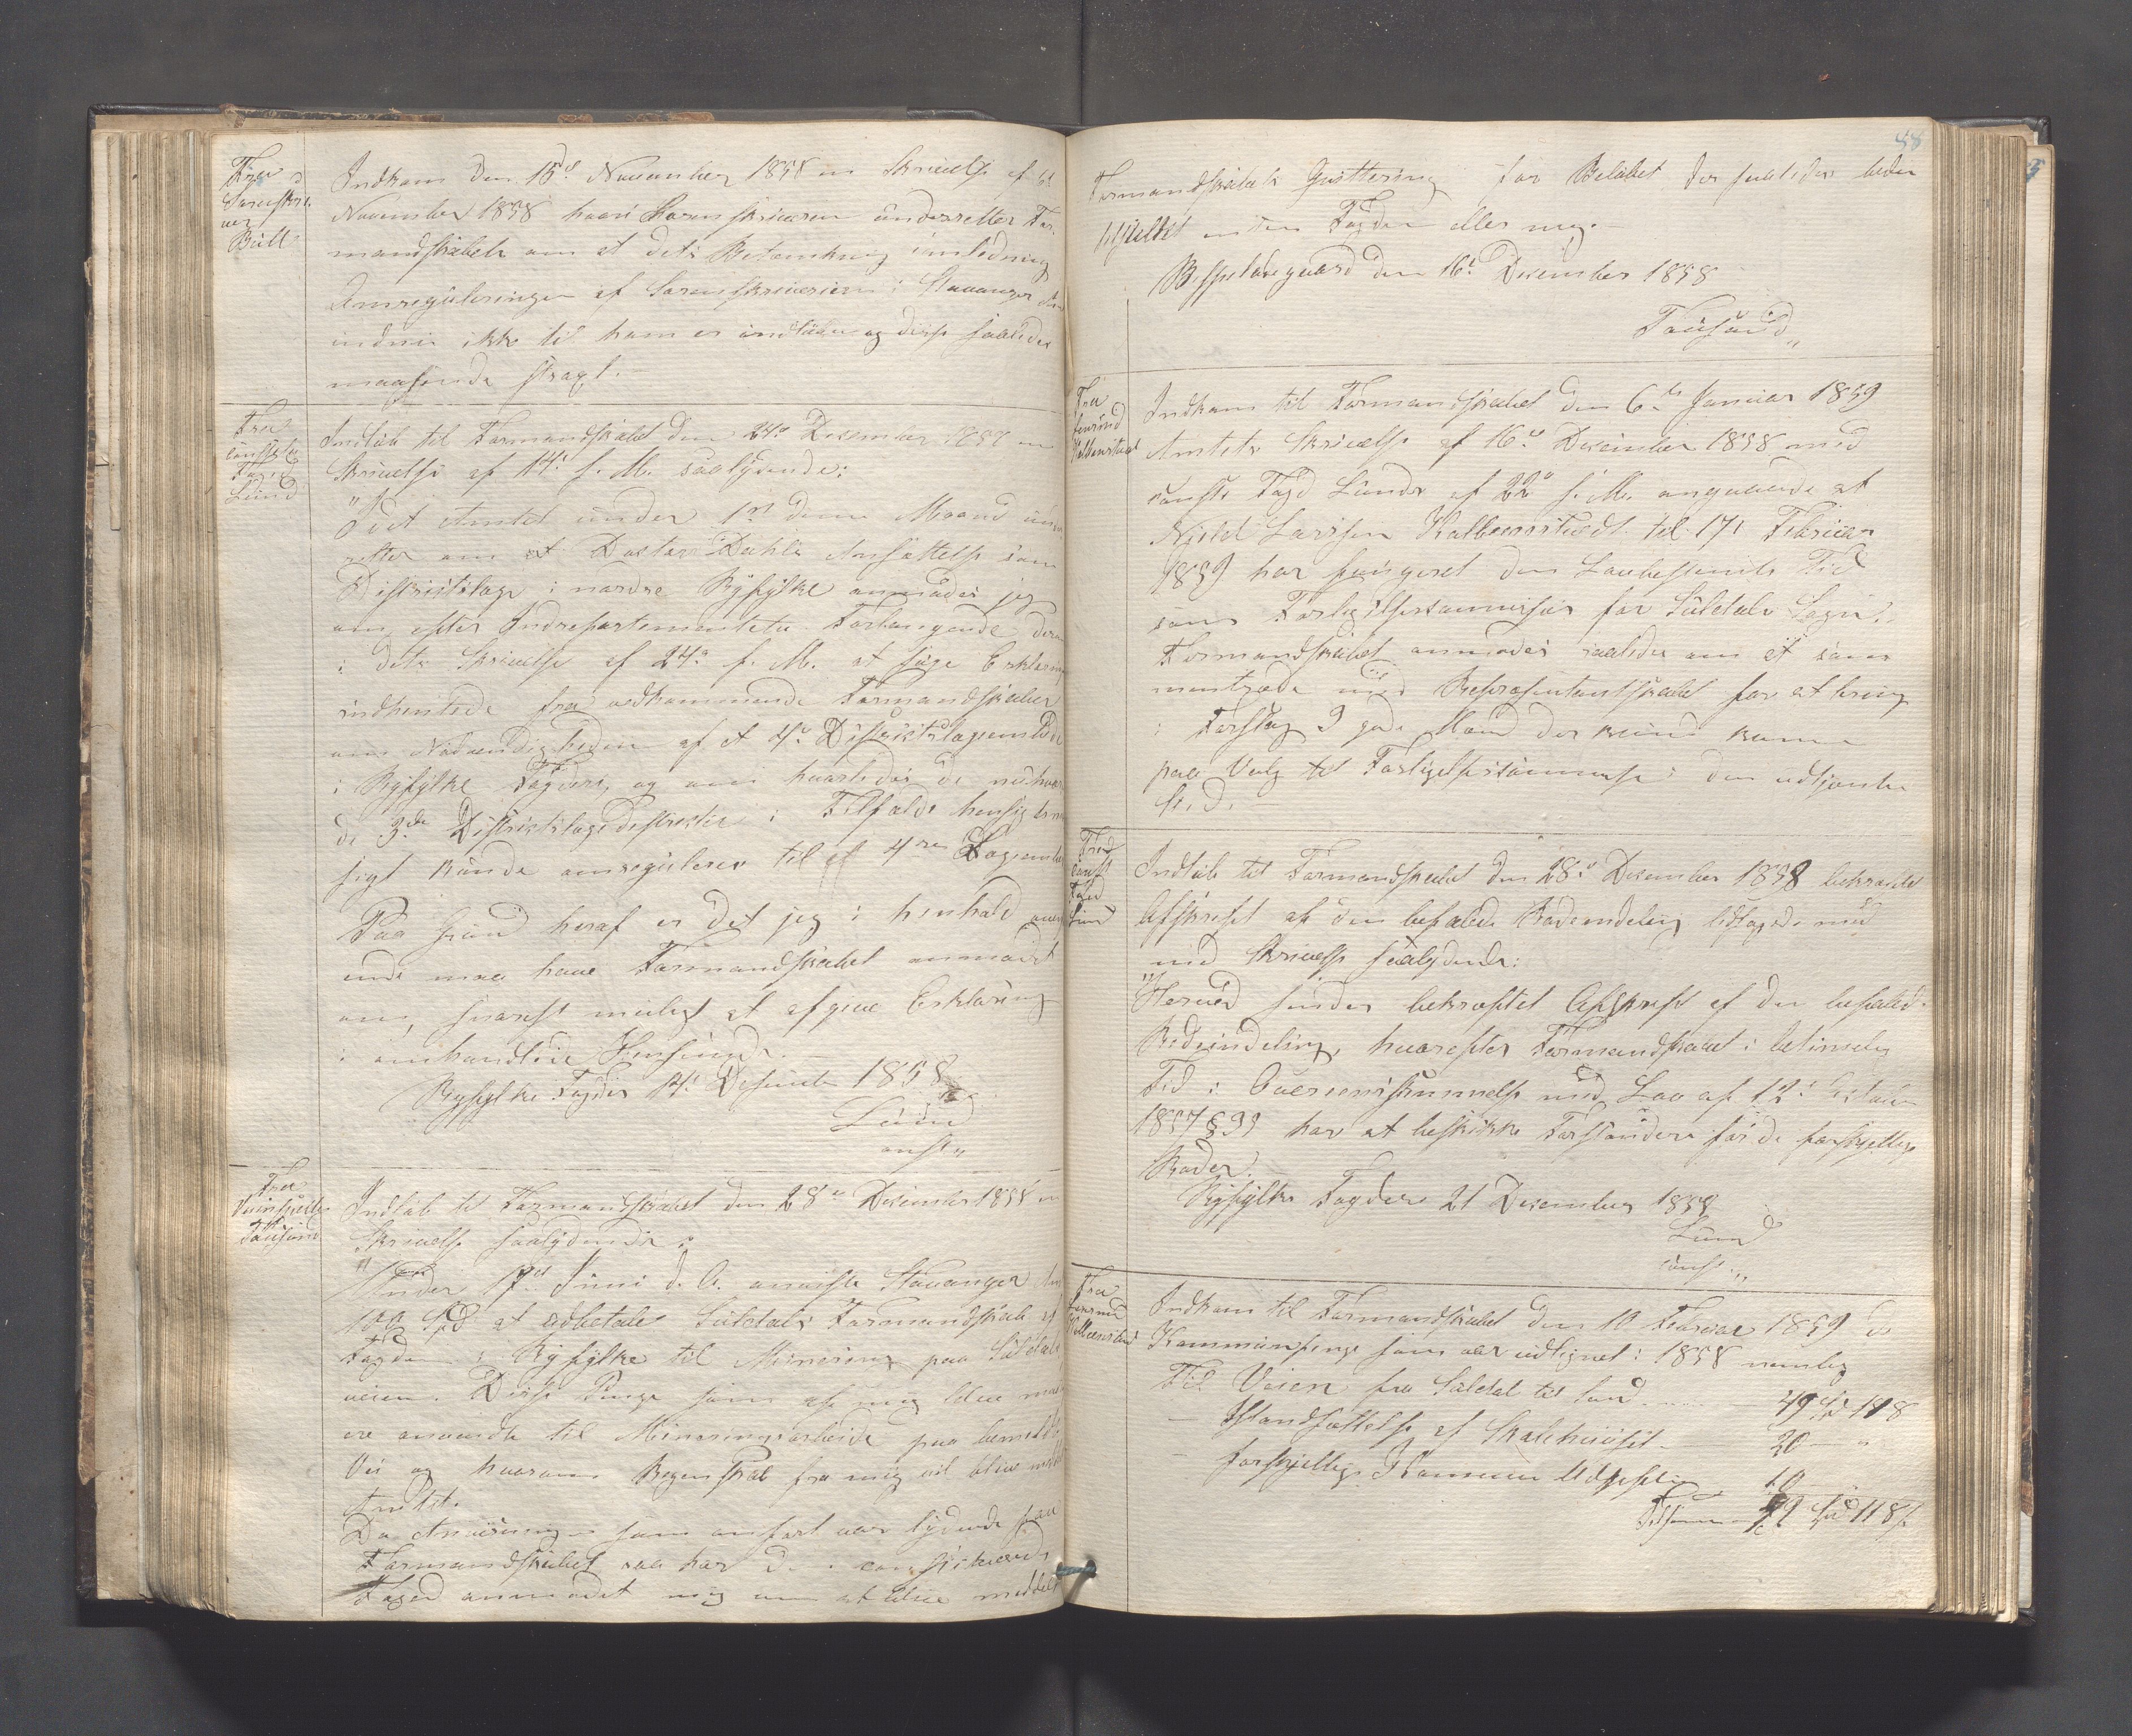 Fra
Sorenskri-
ver
Bull
Indkom den 15de November 1858 en Skrivelse af 6te
November 1858 hvori Sorenskriveren underretter For-
mandskabet om at dets Betænkning i Anledning
Omreguleringen af Sorenskriverien i Stavanger Amt
endnu ikke til ham er indløben og disse saaledes
maa sende strax.
Fra
const
Foged
Lund
Indløb til Formandskabet den 24de December 1858 en
Skrivelse af 14de s. M. saalydende:
"I det Amtet under 1ste denne Maaned under-
retter om at Doctor Dahls Ansættelse som
Distriktslæge i nordre Ryfylke anmodes jeg
om, efter Indredepartementets Forlangende derom
i dets Skrivelse af 24de f. M. at søge Erklæring
indhentede fra vedkommende Formandskaber
om Nødvendigheden af et 4de Distriktslægeembede
i Ryfylke Fogderi, og om hvorledes de nuhavende
de 3de Distriktslægedistrikter i Tilfælde hensigtsmæs-
sigt kunde omreguleres til et 4re Lægeembeder
Paa Grund heraf er det jeg i Henhold
ende maa have Formandskabet anmodet
om, snarest muligt at afgive Erklæring
i omhandlede Henseende.
Ryfylke Fogderi 14de Desember 1858
Lund
const"
Fra
Veiinspectør
Tousund
Indløb til Formandskabet den 28de December 1858 en
Skrivelse saalydende:
"Under 17de Juni d. A. anviste Stavanger Amt
100 Spd at udbetale Suledals Formandskab af
Fogden i Ryfylke til Minering paa Suledals
veien. Disse Penge som af mig blev
ere anvendte til Mineringsarbeide paa bemeldte
Vei og hvorom Regnskab fra mig vil blive
Amtet.
Da Anvisningen som anført var lydende paa
Formandskabet saa har den constituerede
Foged anmodet mig om at blive meddelt
88
Formandskabets Qvittering for Beløbet der saaledes bedes
tilstillet enten Fogden eller mig.
den 16de December 1858
Tousund"
Fra
Indkom til Formandskabet den 6te Januar 1859
Amtets Skrivelse af 16de December 1858 med
const Fogd Lunds af 22de s. M. angaaende at
Njeld Larssen Kolbeinstvedt til 17de Februar
1859 har fungeret den Lovbestemte Tid
som Forligelsescommissær for Suledals Sogn.
Formandskabet anmodes saaledes om at sam-
mentræde med Repræsentantskabet for at bring
i Forslag 3 gode Mænd der kunde komme
paa Valg til Forligelseskommissær i den udtjentes
Sted.
Fra
const
Foged
Lund
Indløb til Formandskabet den 28de December 1858 bekræftet
Afskrift af den befalede Rodeinddeling ledsaget med
med Skrivelse saalydende:
"Herved sendes bekræftet Afskrift af den befalede
Rodeinddeling, hvorefter Formandskabet i betimelig
Tid i Overensstemmelse med Lov af 12te October
1857 § 33 har at beskikke Forstandere for de forskjellige
Roder.
Ryfylke Fogderi 21 December 1858
Lund
const."
Fra
Indkom til Formandskabet den 10 Februar 1859 de
Kommunpenge som var udlignet i 1858 nemlig
Til Veien fra Suledal til Sand 49 Spd 118
- Istandsættelse af Skolehuset - 20 - "
- forskjellige Kommune Udgifter 10
Tilsammen 79 Spd 118 s